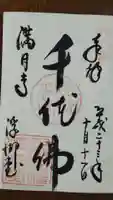 奉拝
平成二十二年
十月十一日
千体佛
満月寺
浮御堂